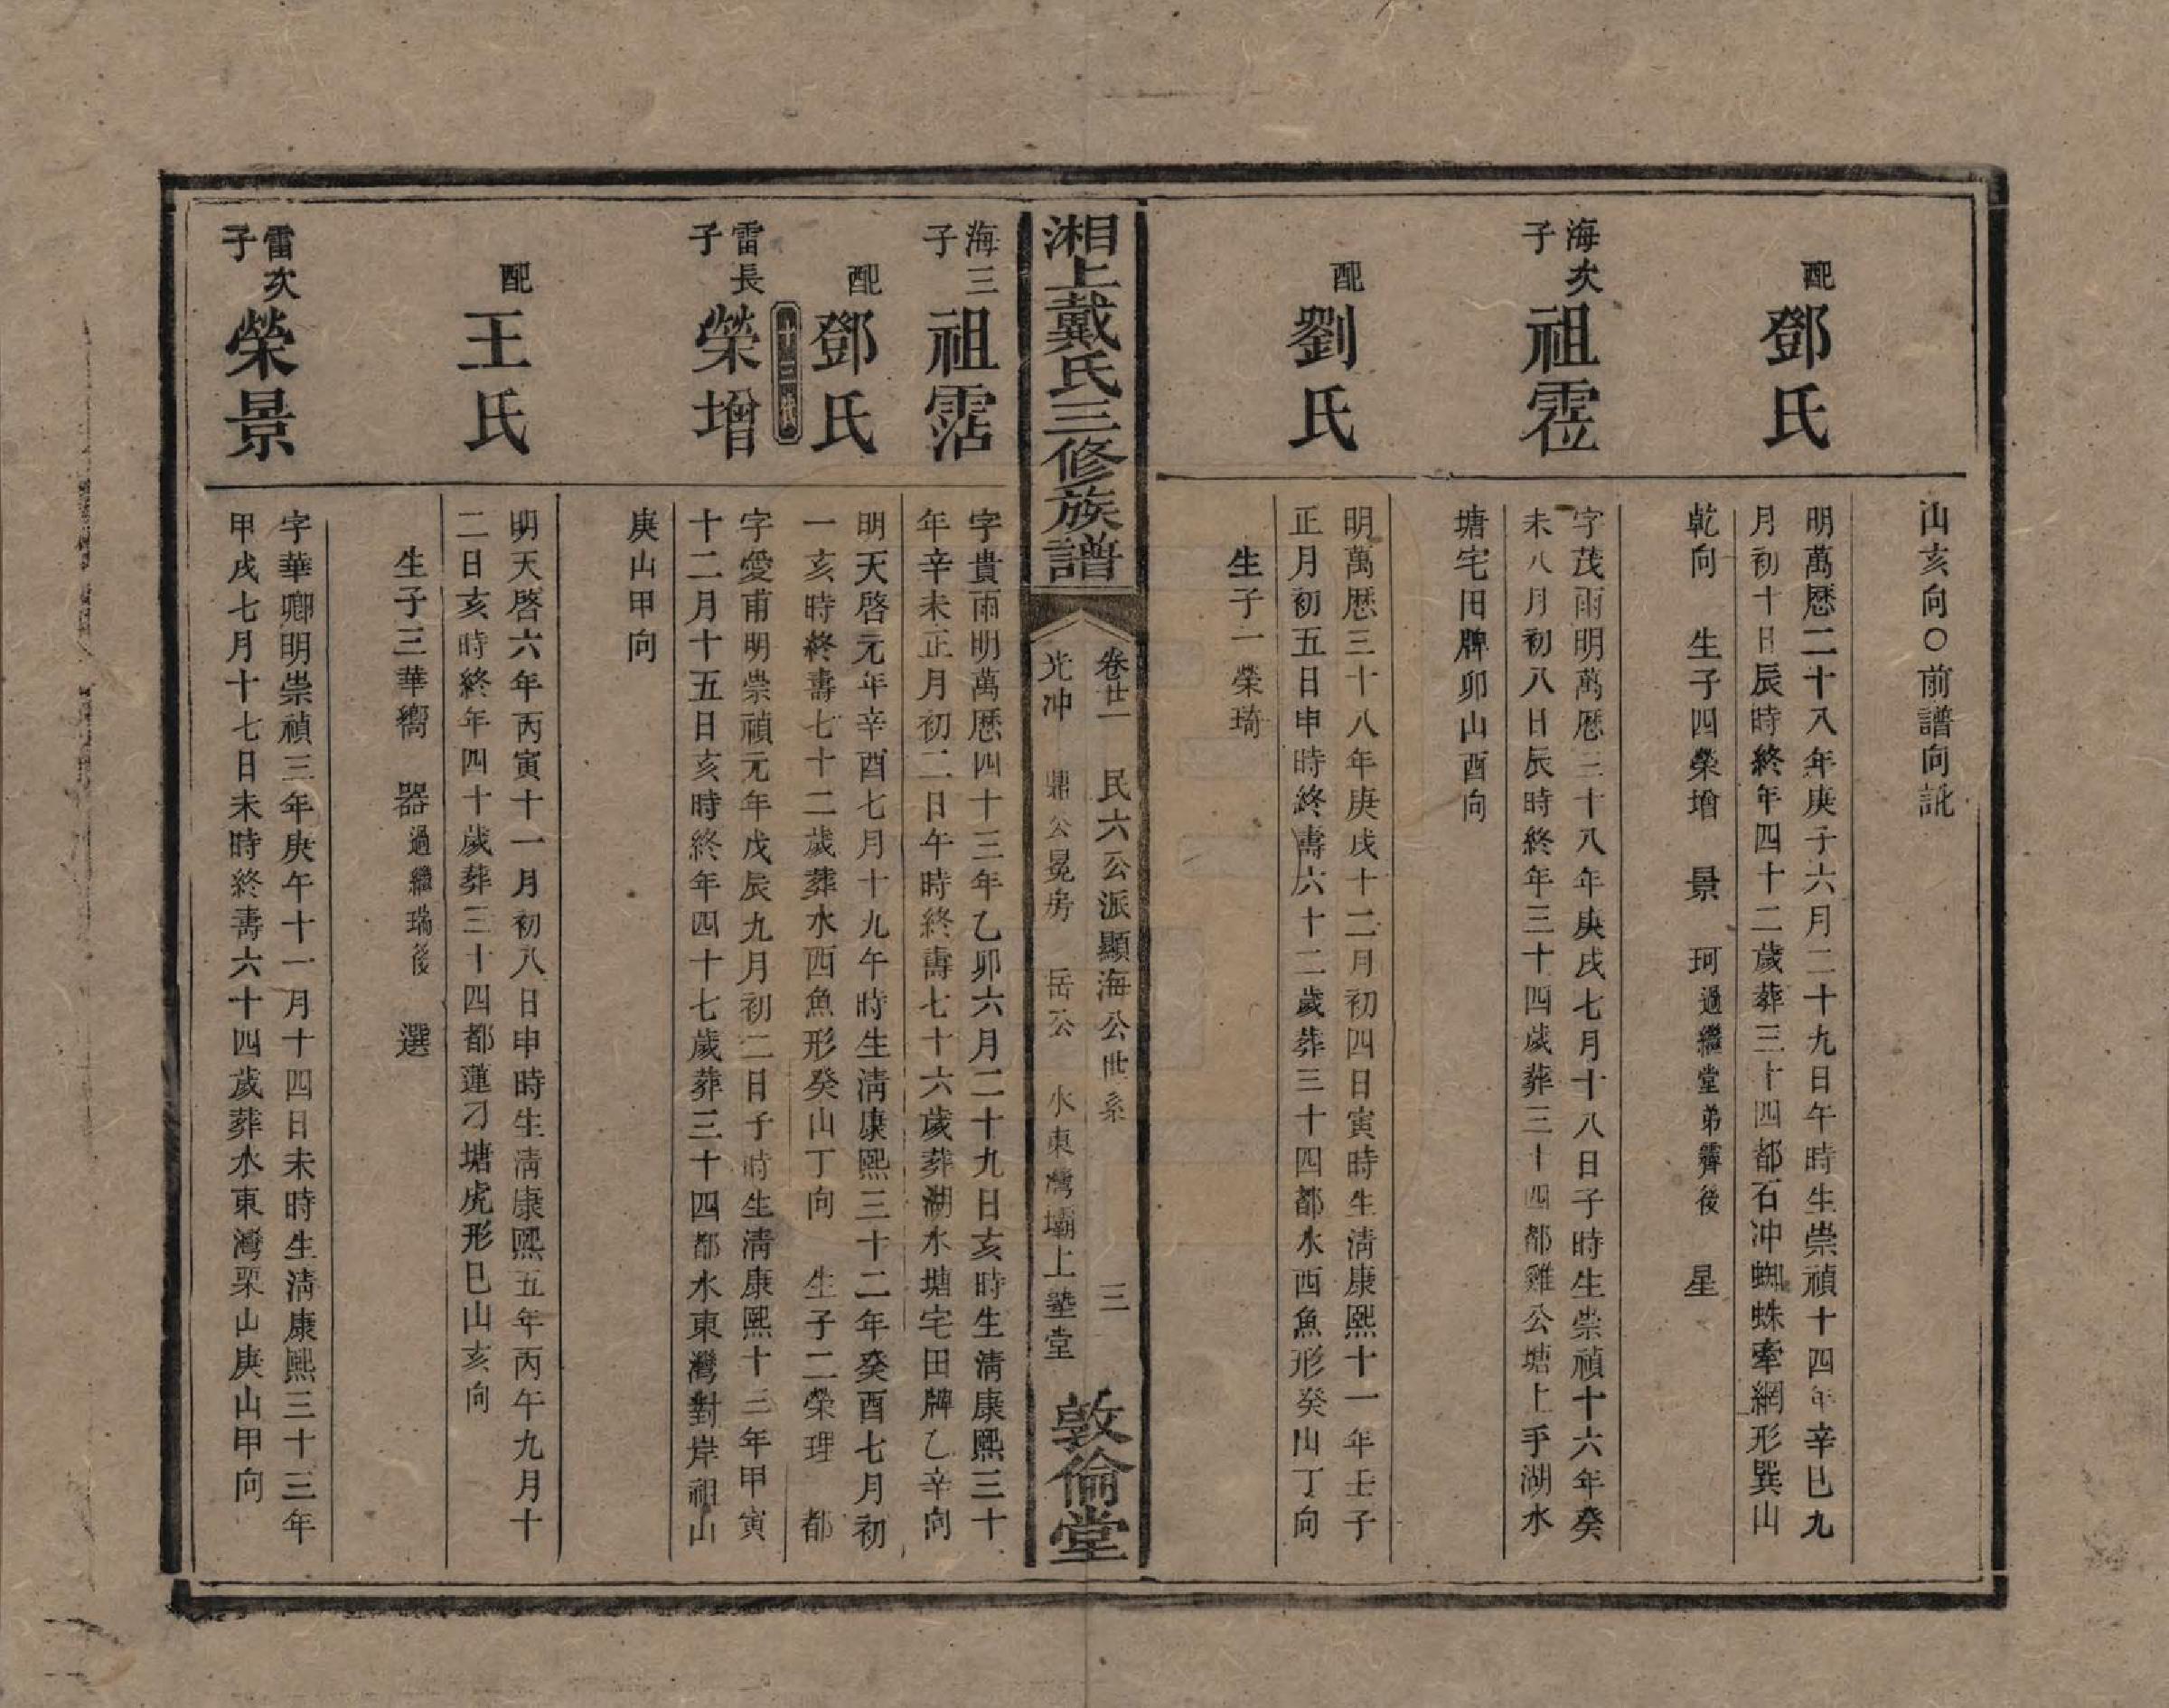 山亥向○前譜向訛
配
鄧氏
明萬歷二十八年庚子六月二十九日午時生崇禎十四年辛巳九
月初十日辰時終年四十二歲葬三十四都石冲蜘蛛牽網形巽山
乾向　生子四榮增　景　珂過繼堂弟霽後　星
海次子
祖霑
字茂雨明萬歷三十八年庚戌七月十八日子時生崇禎十六年癸
未八月初八日辰時終年三十四歲葬三十四都雞公塘上手湖水
塘宅田牌卯山酉向
配
劉氏
明萬歷三十八年庚戌十二月初四日寅時生清康熙十一年壬子
正月初五日申時終壽六十二歲葬三十四都水西魚形癸山丁向
生子一榮琦
湘上戴氏三修族譜
卷廿一　民六公派顯海公世系　三
光冲　鼎公冕房　岳公　水東灣壩上塾堂
敦倫堂
海三子
祖霑
字貴雨明萬歷四十三年乙卯六月二十九日亥時生清康熙三十
年辛未正月初二日午時終壽七十六歲葬湖水塘宅田牌乙辛向
配
鄧氏
明天啓元年辛酉七月十九午時生清康熙三十二年癸酉七月初
一亥時終壽七十二歲葬水西魚形癸山丁向　生子二榮理　都
雷長子
榮增
字愛甫明崇禎元年戊辰九月初二日子時生清康熙十三年甲寅
十二月十五日亥時終年四十七歲葬三十四都水東灣對岸祖山
庚山甲向
配
王氏
明天啓六年丙寅十一月初八日申時生清康熙五年丙午九月十
二日亥時終年四十歲葬三十四都蓮刁塘虎形巳山亥向
生子三華嚮　器過繼瑞後　選
雷次子
榮景
字華卿明崇禎三年庚午十一月十四日未時生清康熙三十三年
甲戌七月十七日未時終壽六十四歲葬水東灣栗山庚山甲向